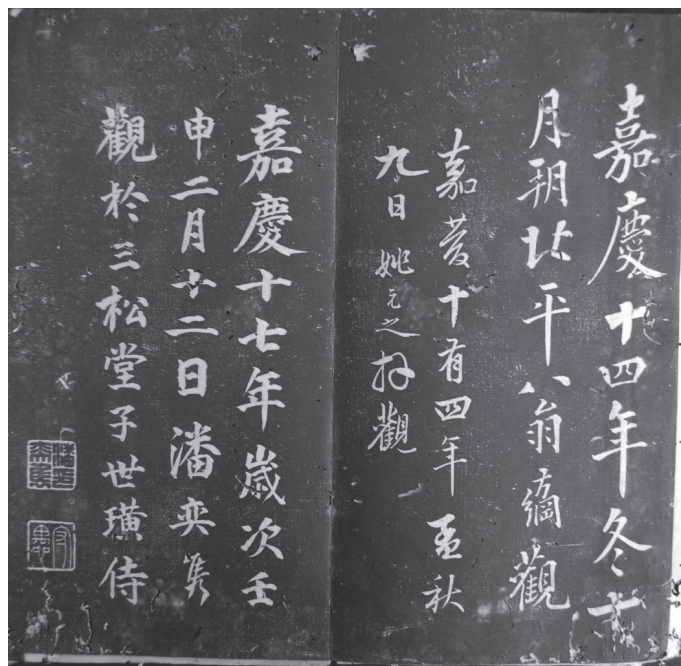 嘉慶十四年冬十
月朔北平翁方綱觀
嘉慶十有四年孟秋
九日姚元之拜觀
嘉慶十七年歲次壬
申二月十二日潘奕雋
觀於三松堂子世璜侍